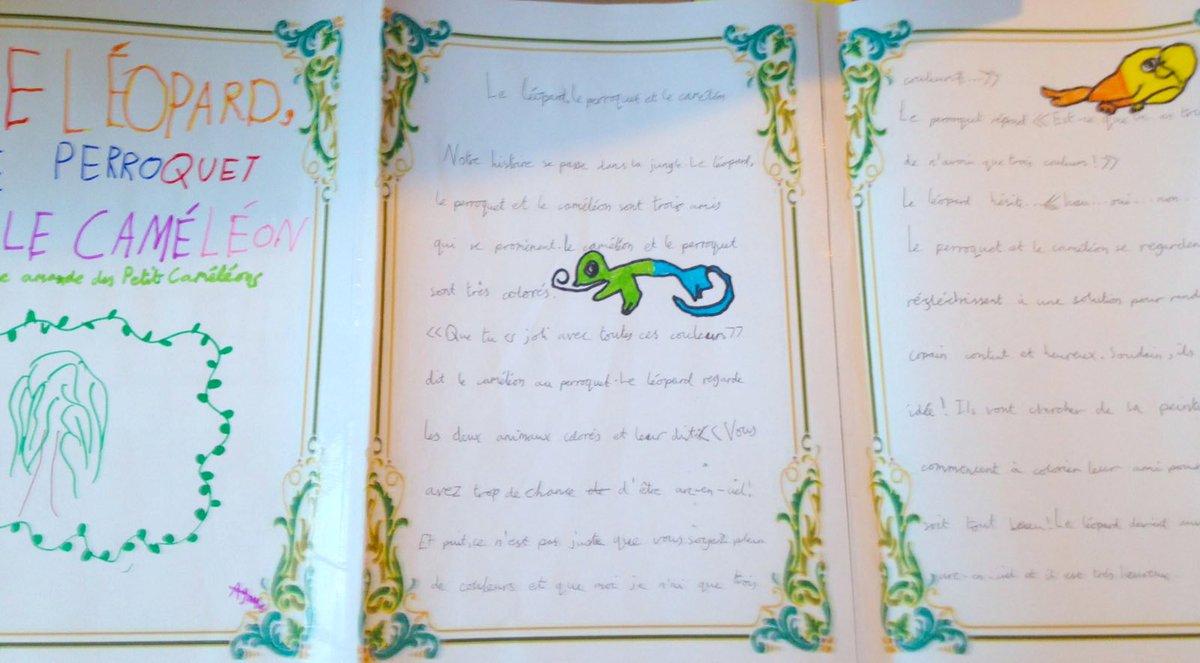 E LÉOPARD,
PERROQUET
LE CAMÉLÉON
des Petits Caméléons
Le léopard, le perroquet et le caméléon
Notre histoire se passe dans la jungle. Le léopard,
le perroquet et le caméléon sont trois amis
qui se promènent. le caméléon et le perroquet
sont très colorés.
<<Que tu es joli avec toutes ces couleurs>>
dit le caméléon au perroquet. Le léopard regarde
les deux animaux colorés et leur dit: << Vous
avez trop de chance d'être arc-en-ciel!
Et puit, ce n'est pas juste que vous soyez plein
de couleurs et que moi je n'ai que trois
couleurs...>>
Le perroquet répond <<Est-ce que
de n'avoir que trois couleurs!>>
Le léopard hésite... << heu... oui... non...
Le perroquet et le caméléon se regarden
réfléchissent à une solution pour rend
copain content et heureux. Soudain, ils
idée! Ils vont chercher de la peintu
commencent à colorier leur ami pour
soit tout beau! Le léopard devient
arc-en-ciel et il est très heureux